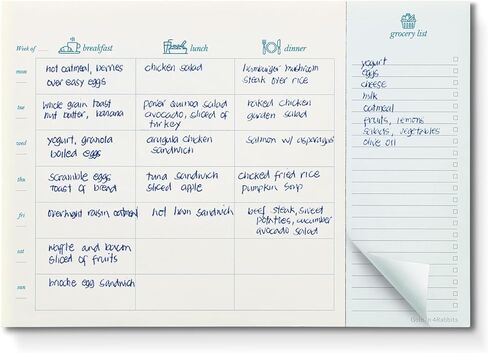 Week of
breakfast
lunch
dinner
grocery list
mon
hot oatmeal, berries
over easy eggs
chicken salad
hamburger mushroom
steak over rice
tue
whole grain toast
nut butter, banana
power quinoa salad
avocado, sliced of
turkey
naked chicken
garden salad
wed
yogurt, granola
boiled eggs
arugula chicken
sandwich
salmon w/ asparagus
thu
scramble eggs
toast of bread
tuna sandwich
sliced apple
chicked fried rice
pumpkin soup
fri
overnight raisin oatmeal
hot ham sandwich
beef steak, sweet
potatoes, cucumber
avocado salad
sat
waffle and bacon
sliced of fruits
sun
brioche egg sandwich
yogurt
eggs
cheese
milk
oatmeal
fruits, lemons
salads, vegetables
olive oil
4Rabbits